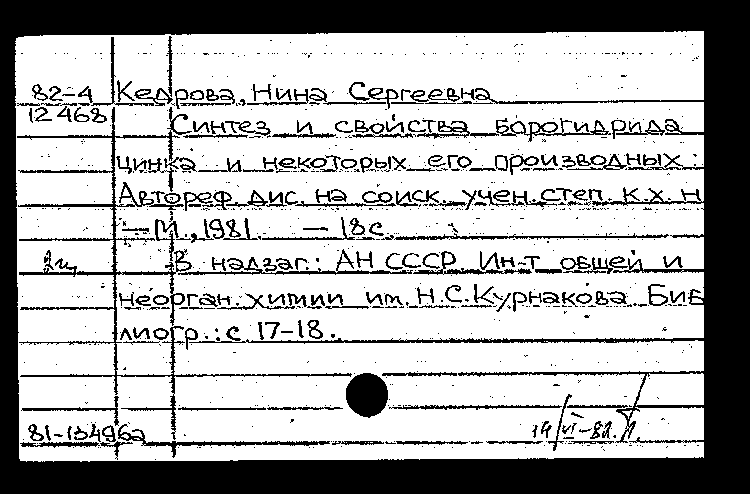 82-4 Кедрова, Нина Сергеевна
12468 Синтез и свойства борогидрида
цинка и некоторых его производных:
Автореф. дис. на соиск. учен. степ. к.х.н
— М., 1981. — 18с.
В надзаг.: АН СССР. Ин-т общей и
неорган. химии им. Н.С.Курнакова. Биб
лиогр.: с. 17-18.
81-13496а